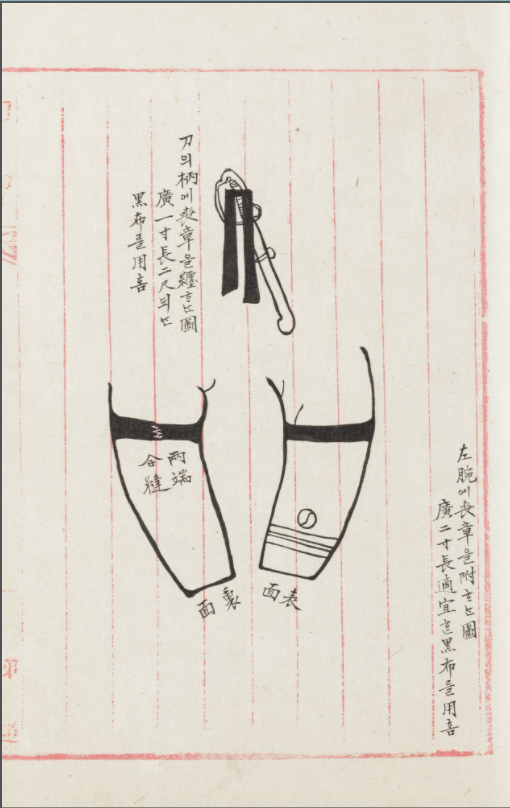 刀의柄에喪章을纏ᄒᆞᄂᆞᆫ圖
廣一寸長二尺되ᄂᆞᆫ
黑布를用홈
左腕에喪章을附ᄒᆞᄂᆞᆫ圖
廣二寸長適宜ᄒᆞᆫ黑布를用홈
表面
兩端
合縫
裏面